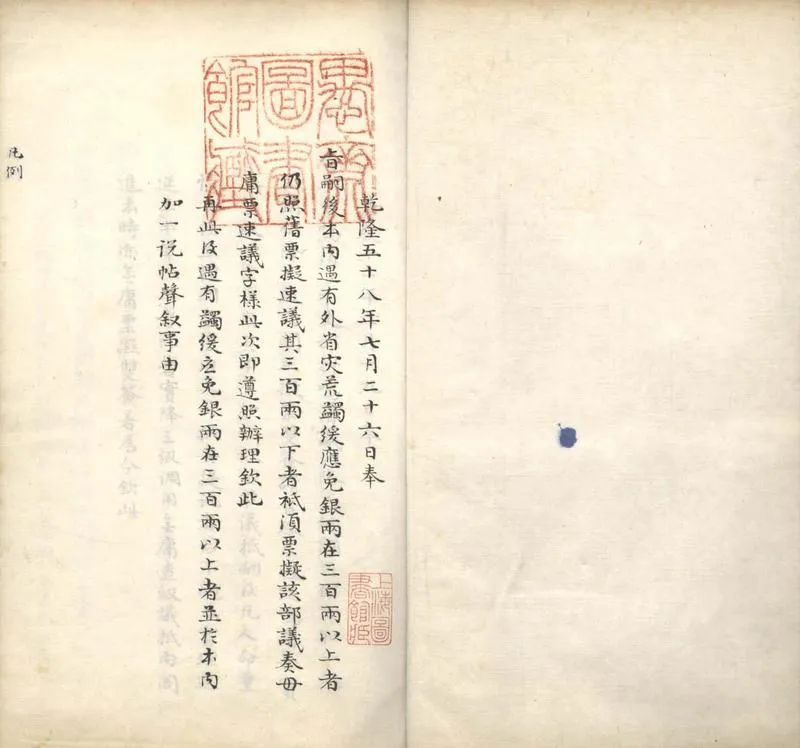 乾隆五十八年七月二十六日奉
旨嗣後本內遇有外省灾荒蠲緩應免銀兩在三百兩以上者
仍照舊票擬速議其三百兩以下者祗湏票擬該部議奏毋
庸票速議字樣此次即遵照辦理欽此
再此後遇有蠲緩應免銀兩在三百兩以上者並於本內
加一說帖聲叙事由
凡例
愚齋圖書館藏
上海圖書館藏